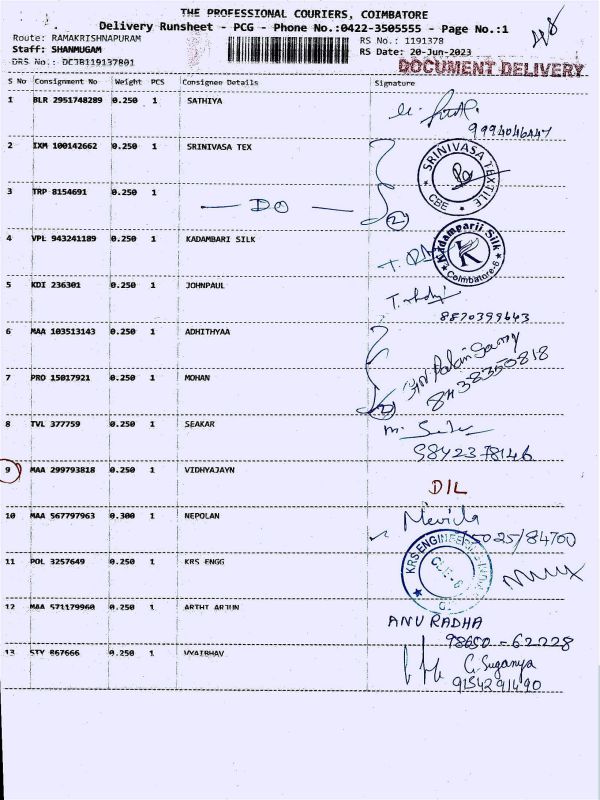 THE PROFESSIONAL COURIERS, COIMBATORE
Delivery Runsheet - PCG - Phone No.:0422-3505555 - Page No.:1
Route: RAMAKRISHNAPURAM
RS No.: 1191378
Staff: SHANMUGAM
RS Date: 20-Jun-2023
DRS No.: DCJB119137801
DOCUMENT DELIVERY
S No Consignment No Weight PCS Consignee Details Signature
1 BLR 2951748289 0.250 1 SATHIYA
9994046447
2 IXM 100142662 0.250 1 SRINIVASA TEX
SRINIVASA TEXTILE
CBE
3 TRP 8154691 0.250 1 — DO —
2
4 VPL 943241189 0.250 1 KADAMBARI SILK
Kadamparii Silk
K
Coimbatore-6
5 KDI 236301 0.250 1 JOHNPAUL
8870399643
6 MAA 103513143 0.250 1 ADHITHYAA
7 PRO 15017921 0.250 1 MOHAN
8438350818
2
8 TVL 377759 0.250 1 SEAKAR
9842378146
9 MAA 299793818 0.250 1 VIDHYAJAYN
DIL
10 MAA 567797963 0.300 1 NEPOLAN
75025/84700
11 POL 3257649 0.250 1 KRS ENGG
KRS ENGINEERING
12 MAA 571179960 0.250 1 ARTHI ARJUN
ANURADHA
98650-62228
13 STY 867666 0.250 1 VYAIBHAV
G. Suganya
9154291490